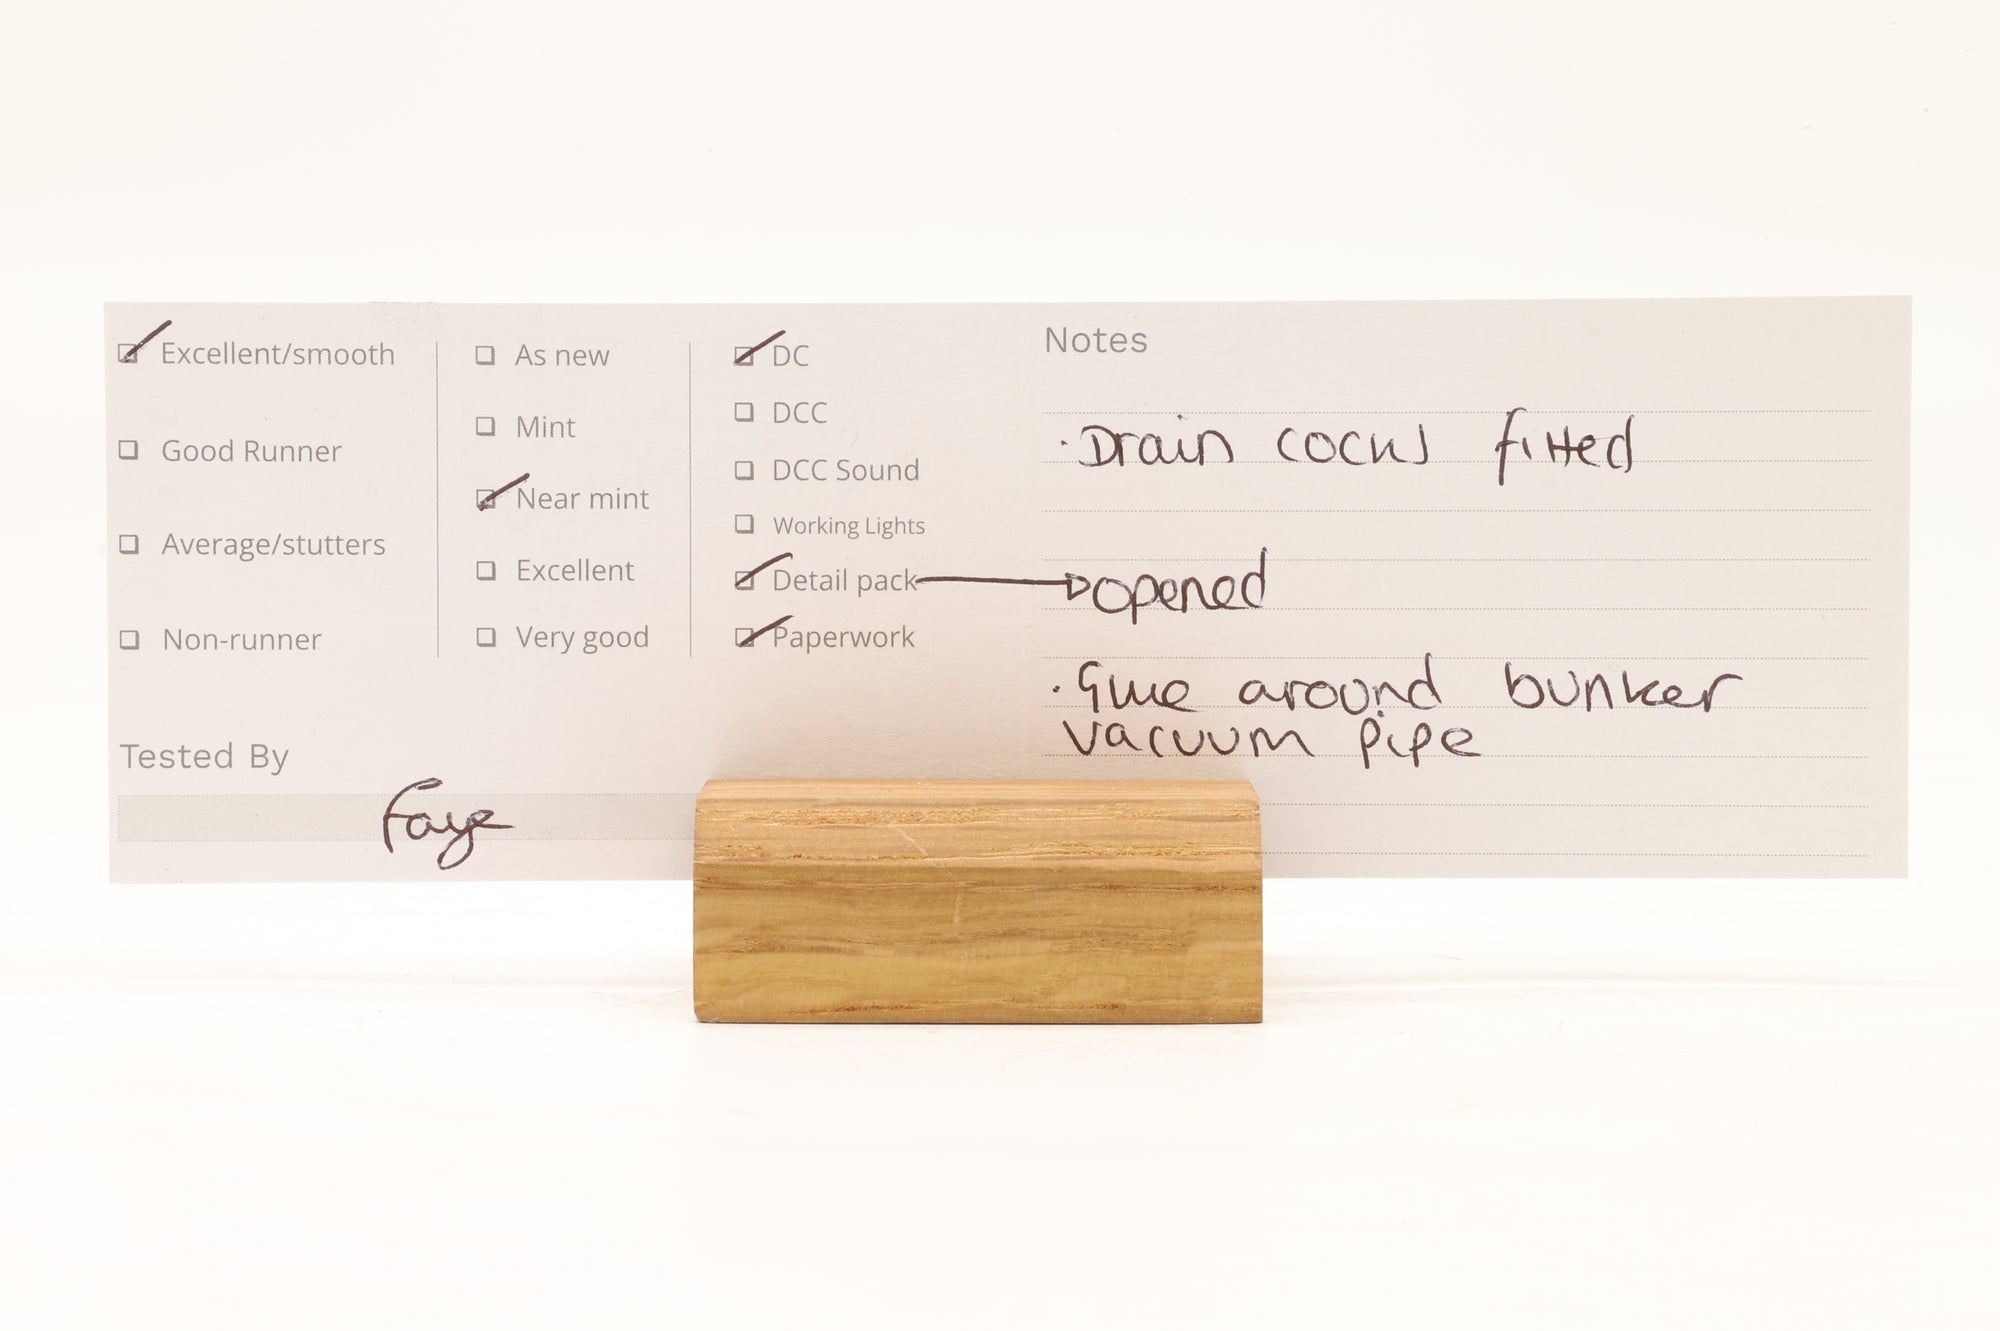 Excellent/smooth
Good Runner
Average/stutters
Non-runner
As new
Mint
Near mint
Excellent
Very good
DC
DCC
DCC Sound
Working Lights
Detail pack
Paperwork
Tested By
Faye
Notes
· Drain cocks fitted
opened
· Glue around bunker
vacuum pipe